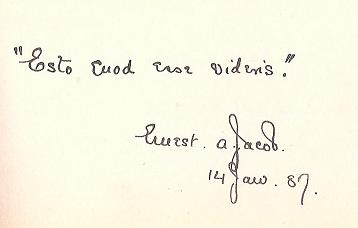 "Esto quod esse videris."
Ernest. A. Jacob.
14 Jan. 87.